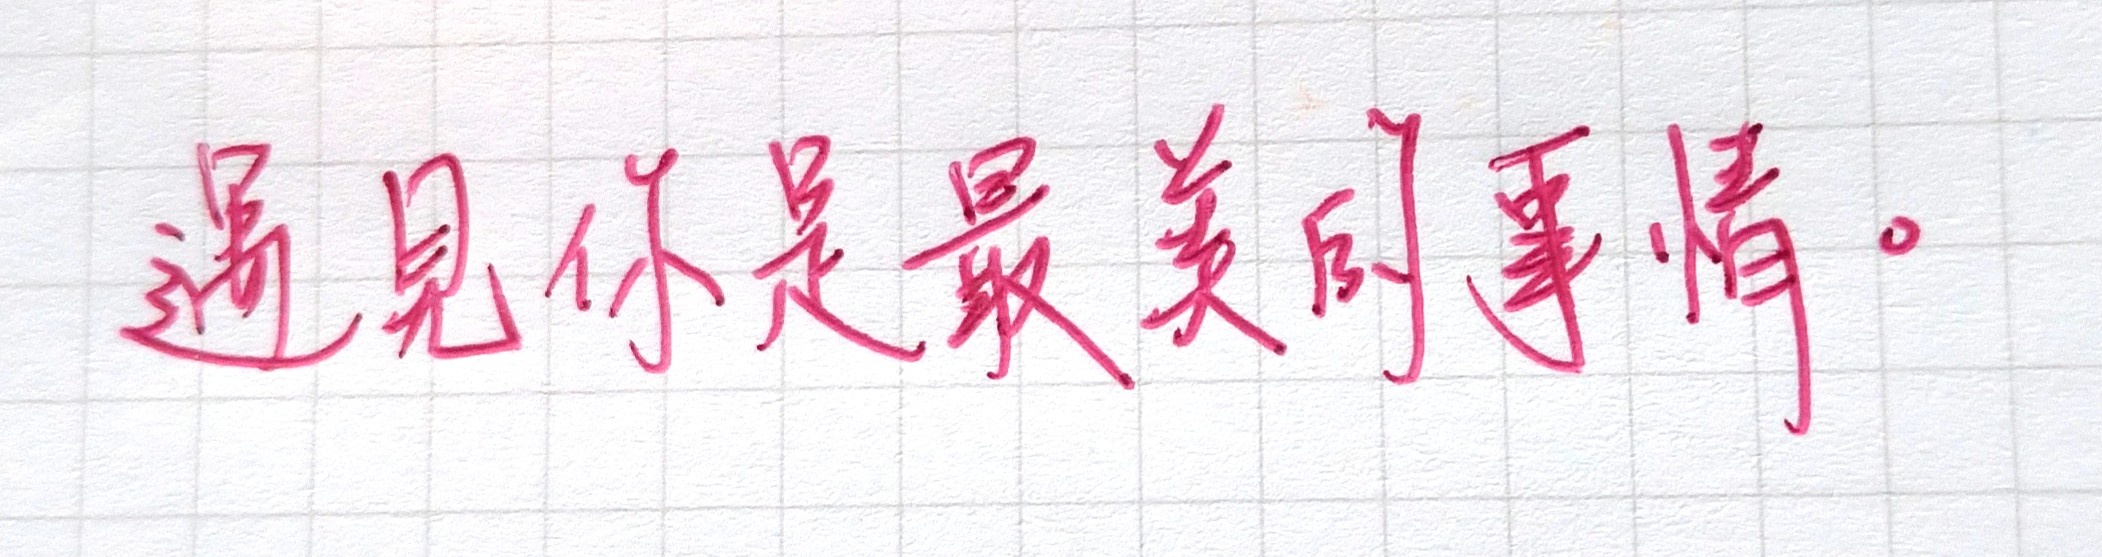 遇見你是最美的事情。